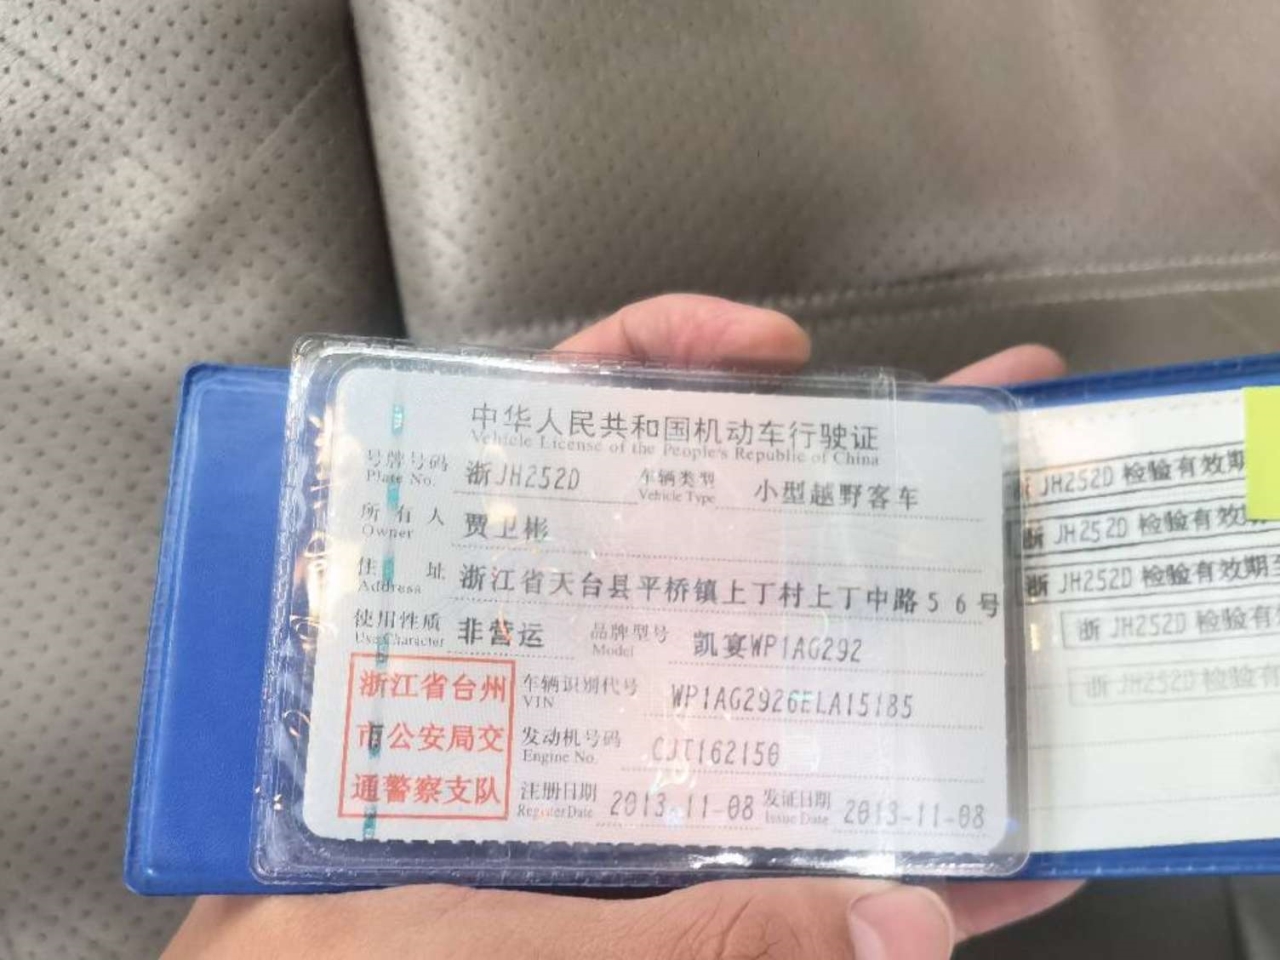 中华人民共和国机动车行驶证
Vehicle License of the People's Republic of China
号牌号码 浙JH252D 车辆类型 小型越野客车
Plate No. Vehicle Type
所有人 贾卫彬
Owner
住址 浙江省天台县平桥镇上丁村上丁中路56号
Address
使用性质 非营运 品牌型号 凯宴WP1AG292
Use Character Model
浙江省台州
市公安局交
通警察支队
车辆识别代号 WP1AG2926ELA15185
VIN
发动机号码 CJT162150
Engine No.
注册日期 2013-11-08 发证日期 2013-11-08
Register Date Issue Date
浙JH252D 检验有效期
浙JH252D 检验有效
浙JH252D 检验有效期至
浙JH252D 检验有
浙JH252D 检验有